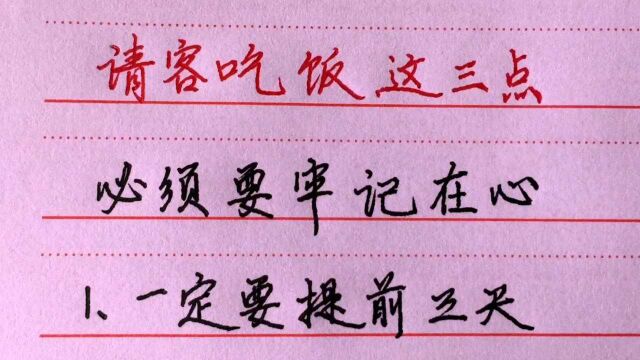 请客吃饭这三点
必须要牢记在心
1、一定要提前三天